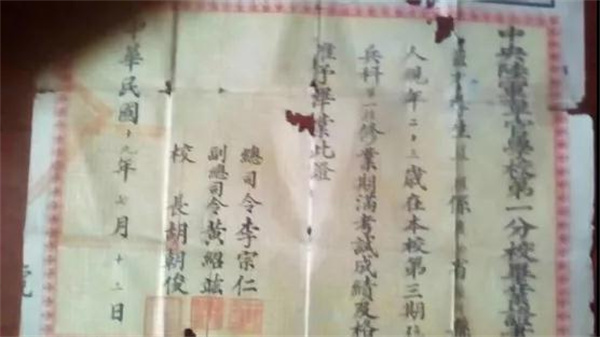 中央陸軍軍官學校第一分校畢業證書
學生 係 省 縣
人現年二十三歲在本校第三期
兵科第 修業期滿考試成績及格
准予畢業此證
總司令李宗仁
副總司令黃紹竑
校長胡朝俊
中華民國十九年七月十二日
號